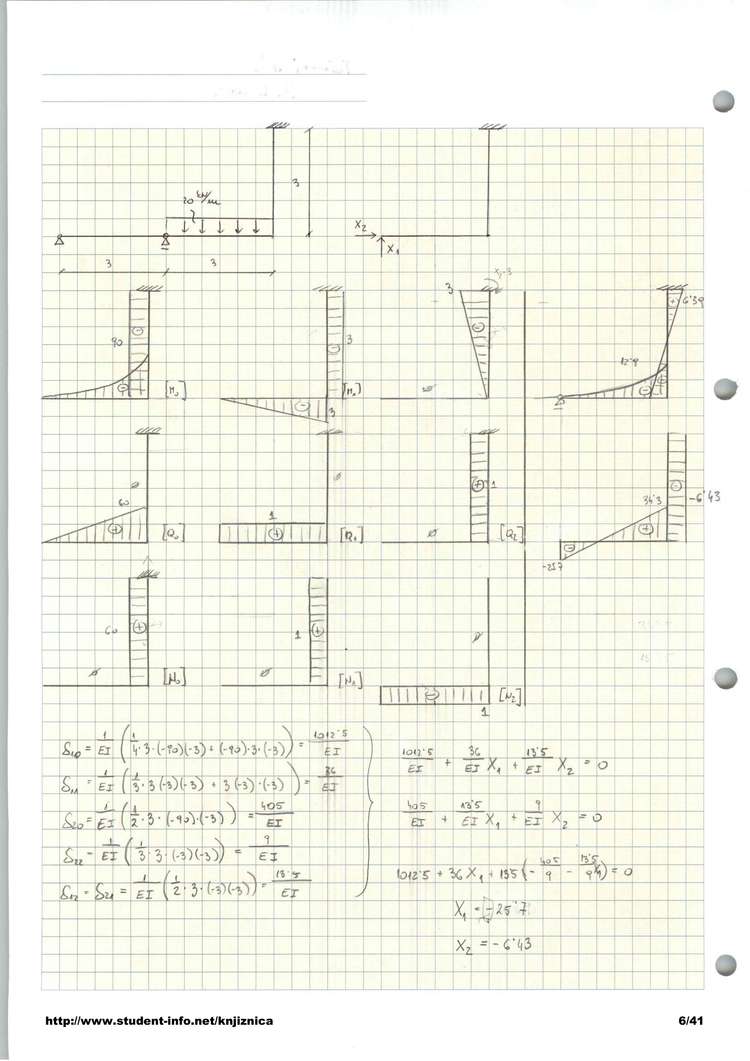 20 kN/m
3
X₂
X₁
3
3
3
X₂·3
6'39
90
⊖
3
⊖
⊕
12'9
⊖
[M₀]
⊖
3
[M₁]
ø
⊖
ø
ø
1
34'3
-6'43
60
⊕
[Q₀]
1
⊕
[Q₁]
ø
[Q₂]
⊖
-25'7
60
⊕
1
⊕
ø
ø
[N₀]
ø
[N₁]
⊖
[N₂]
1
δ₁₀ = 1/EI (1/4·3·(-90)(-3) + (-90)·3·(-3)) = 1012'5/EI
δ₁₁ = 1/EI (1/3·3(-3)(-3) + 3(-3)·(-3)) = 36/EI
δ₂₀ = 1/EI (1/2·3·(-90)·(-3)) = 405/EI
δ₂₂ = 1/EI (1/3·3·(-3)(-3)) = 9/EI
δ₁₂ = δ₂₁ = 1/EI (1/2·3·(-3)(-3)) = 13'5/EI
1012'5/EI + 36/EI X₁ + 13'5/EI X₂ = 0
405/EI + 13'5/EI X₁ + 9/EI X₂ = 0
1012'5 + 36X₁ + 13'5 (-405/9 - 13'5/9 X₁) = 0
X₁ = -25'7
X₂ = -6'43
http://www.student-info.net/knjiznica
6/41